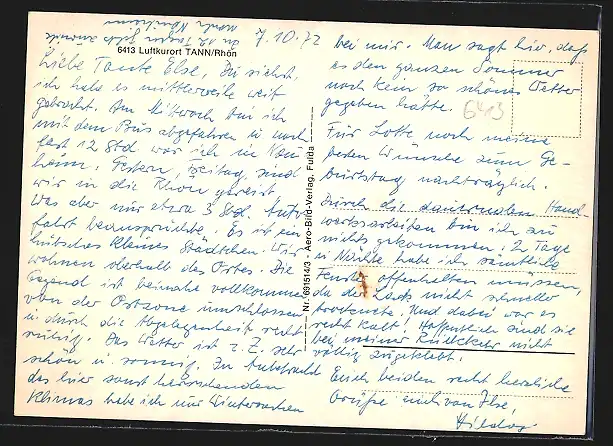 In 12 Tagen geht's zurück
nach Monheim
6413 Luftkurort TANN/Rhön
7.10.72
Liebe Tante Else, Du siehst,
ich habe es mittlerweile weit
gebracht. Am Mittwoch bin ich
mit dem Bus abgefahren u. nach
fast 12 Std war ich in Mon
heim. Gestern, Freitag, sind
wir in die Rhön gereist
was aber nur etwa 3 Std. Auto
fahrt beanspruchte. Es ist ein
hübsches kleines Städtchen. Wir
wohnen oberhalb des Ortes. Die
Gegend ist beinahe vollkommen
von der Ostzone umschlossen
u. durch die Abgelegenheit recht
ruhig. Das Wetter ist z. Z. sehr
schön u. sonnig. In
das hier sonst herrschenden
Klimas habe ich nur Wintersachen
Nr. 691514/3 - Aero-Bild-Verlag, Fulda
bei mir. Man sagt hier, daß
es den ganzen Sommer
noch kein so schönes Wetter
gegeben hätte.
6413
Für Lotte noch meine
besten Wünsche zum Ge-
burtstag nachträglich.
Durch die dauernden Hand-
werksarbeiten bin ich zu
nichts gekommen. 2 Tage
u. Nächte habe ich sämtliche
Fenster offenhalten müssen,
da der Lack nicht schneller
trocknete. Und dabei war es
recht kalt. Hoffentlich sind sie
bei meiner Rückkehr nicht
völlig zugeklebt.
Euch beiden recht herzliche
Grüße auch von Ilse,
Hildeg.